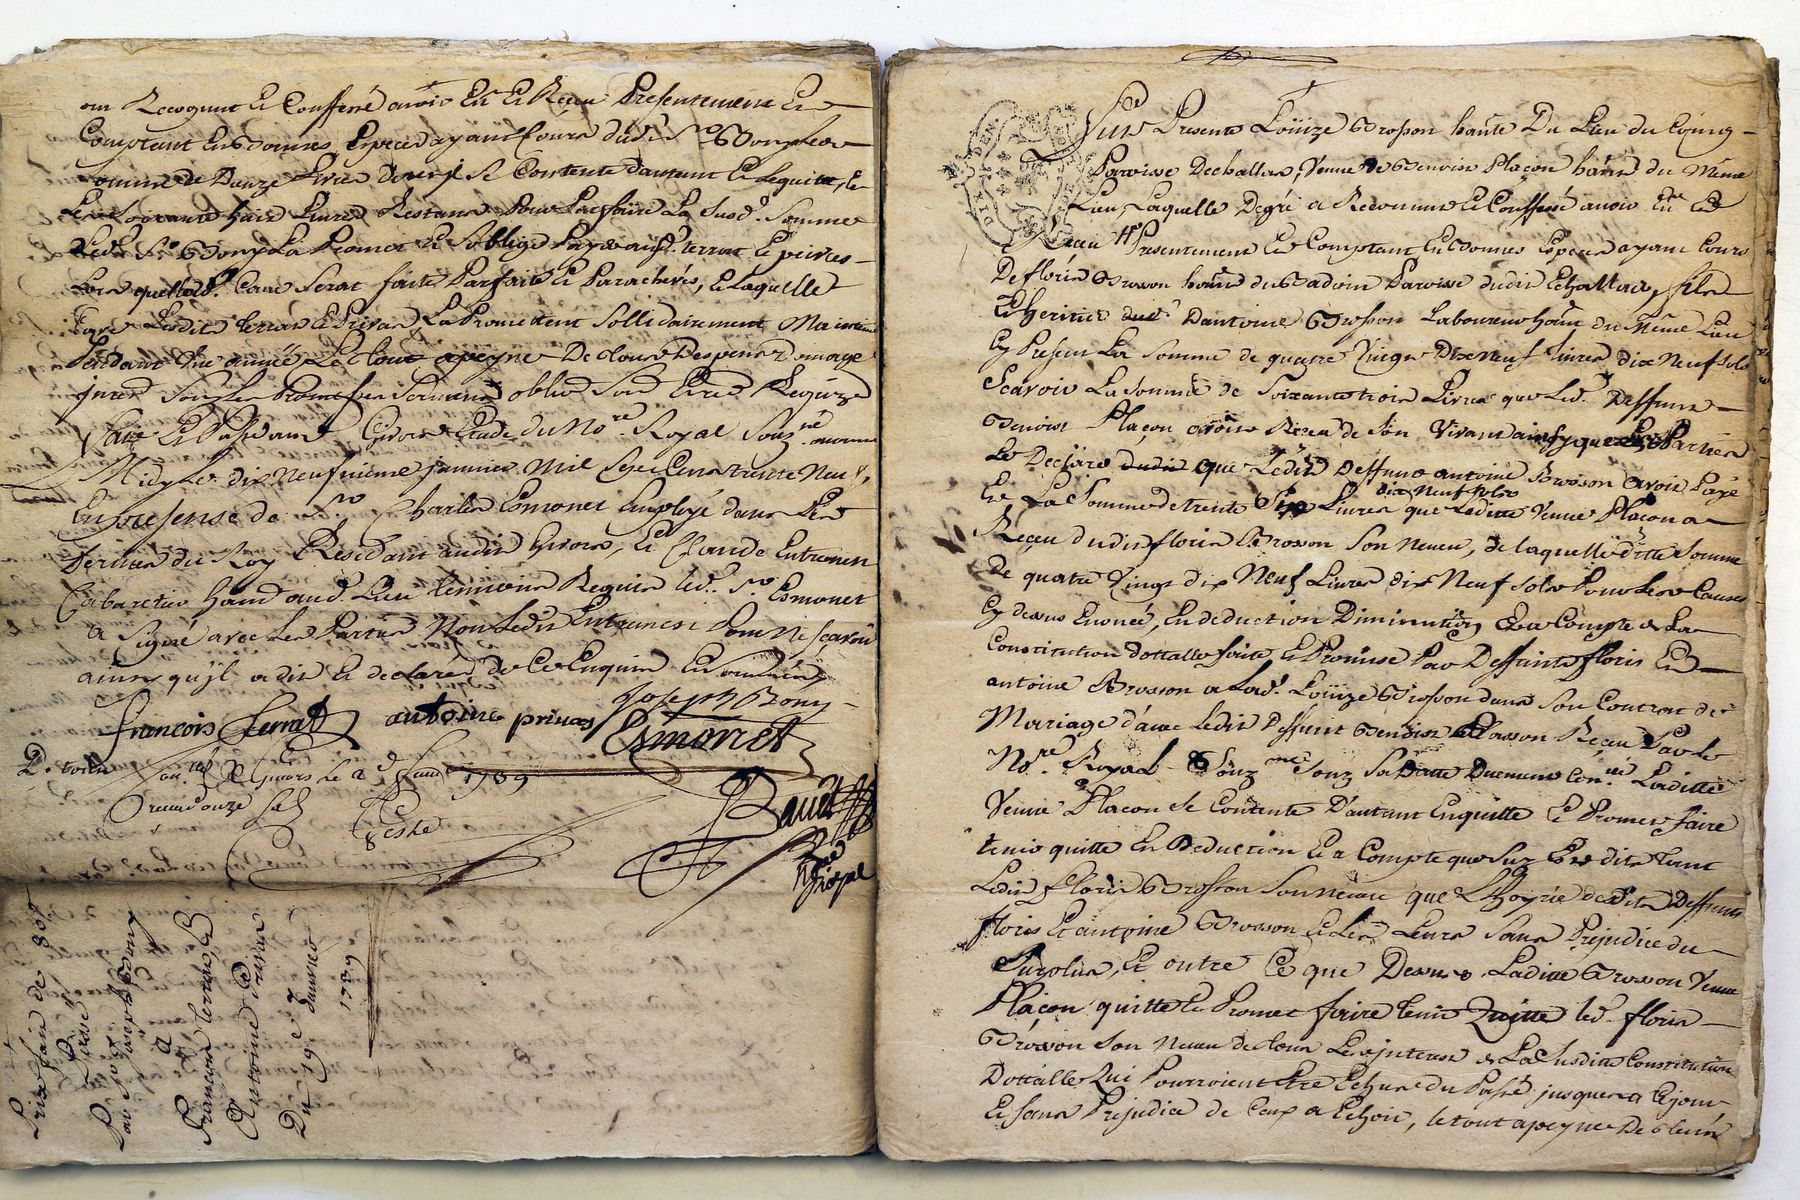 ont Recognut et Confessé avoir Eu et Receu Presentement Et
Comptant En bonnes Especes ayant Cours dudit Sr Bony La
somme de Douze livres dont il se Contente dautant et le quitte, et
Les Soixante huit Livres Restans Pour Parfaire La Susd. Somme
Ledit Sr Bony La Promet et Soblige Payer auxd. terrat et privas
Lors que lad. Cave Serat faite Parfaite et Parachevée, Laquelle
Cave Lesdits terrat et Privas La Promettent Sollidairement Maintenir
Pendant Une année Le tout apeyne De tous Despens Domage
jnrest Soub les Promesses Serments oblig. Soub. et Req.
Fait et Passé aud. Givors Etude du Nore Royal Souzné avant
Midy Le dix Neufvieme janvier Mil Sept Cens trente Neuf,
En presense de Sr Charles Esmonet Employé dans Les
fermes du Roy Residant audit Givors, Et Claude Entremen
Cabaretier hant aud. Lieu temoins Requis led. Sr Esmonet
a Signé avec les Parties Non Ledit Entremen Pour Ne Sçavoir
ainsy qu'jl a dit et declaré de Ce Enquis Et Sommé
Joseph Bony
françois Terrat antoine privas
Esmonet
Con.lé A Givors le 2e 1739
Receu douze Sols
Reste
8
Bauet
Nore
Royal
Prix fait de 80#
Passé
Par Sr Joseph Bony
A
François terrat, et
Antoine Privas
Du 19e Janvier
1739
Fut Presente Loüize Brosson hante Du Lieu du Coing
Paroisse Dechallas, Veuve de Benoist Plaçon hant du Même
Lieu, Laquelle Degré a Reconnu et Confessé avoir Eu et
Receu Presentement Et Comptant En Bonnes Especes ayant Cours
De floris Brosson hant du Badoin Paroisse dudit Echallas, fils
et heritier dantoine Brosson Laboureur hant du Même Lieu
Cy Present La Somme de quatre Vingt Dix Neuf livres dix Neuf sols
Scavoir La Somme de Soixante trois Livres que Led. Deffunt
Benoist Plaçon avoit Receu de Son Vivant ainsy que Les Parties
Le Declare que Ledit Deffunt antoine Brosson avoit Payé
dix Neuf sols
Et La Somme de trente Six Livres que Laditte Veuve Plaçon a
Receu dudit floris Brosson Son Neveu, de laquelle ditte Somme
De quatre Vingt dix Neuf Livres dix Neuf sols Pour Les Causes
Cy dessus Enoncé, En deduction Diminution Et a Compte de La
Constitution dottalle faite Et Promise Par Deffunts floris Et
antoine Brosson a Lad. Loüize Brosson dans Son Contrat de
Mariage d'avec Ledit Deffunt Benoist Plasson Receu Par le
Nore Royal Souzné Souz Sa Datte Duement Con.lé Laditte
Veuve Plaçon Se Contente D'autant En quitte Et Promet faire
tenir quitte En Deduction Et a Compte que Sus Est dit tant
Ledit floris Brosson Son Neveu que L'hoyrie desdits Deffunts
floris Et antoine Brosson et Les Leurs Sans Prejudice du
Surplus, Et outre Ce que Dessus Laditte Brosson Veuve
Plaçon quitte Et Promet faire tenir Quitte led. floris
Brosson Son Neveu de tous Les jnterest de La Susditte Constitution
Dottalle Qui Pourroient Etre Echus du Passé jusques a Cejour
Et Sans Prejudice de Ceux a Echoir, le tout apeyne De tous